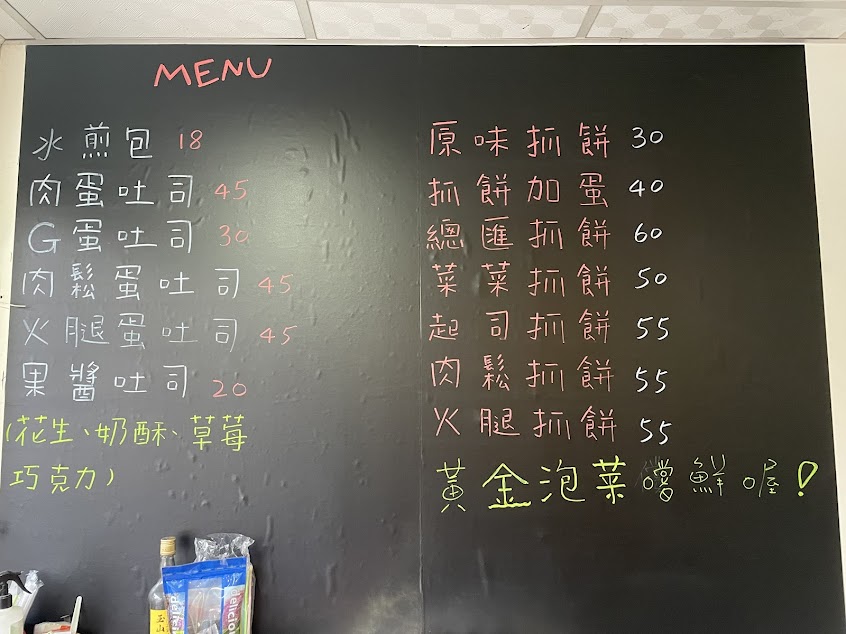 MENU
水煎包 18
肉蛋吐司 45
G蛋吐司 30
肉鬆蛋吐司 45
火腿蛋吐司 45
果醬吐司 20
(花生、奶酥、草莓
巧克力)
原味抓餅 30
抓餅加蛋 40
總匯抓餅 60
菜菜抓餅 50
起司抓餅 55
肉鬆抓餅 55
火腿抓餅 55
黃金泡菜嚐鮮喔!
玉山